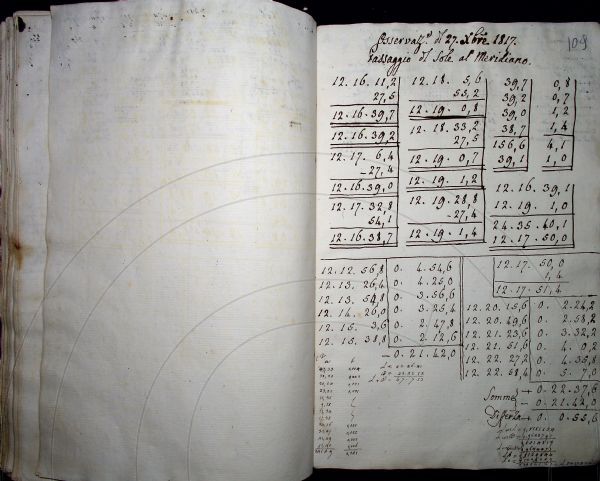 109
Osservaz.ni di 27. Xbre. 1817.
Passaggio del Sole al Meridiano.
12. 16. 11,2
27,5
12. 16. 39,7
12. 16. 39,2
12. 17. 6,4
– 27,4
12. 16. 39,0
12. 17. 32,8
54,1
12. 16. 38,7
12. 18. 5,6
53,2
12. 19. 0,8
12. 18. 33,2
27,5
12. 19. 0,7
12. 19. 1,2
12. 19. 28,8
– 27,4
12. 19. 1,4
39,7
39,2
39,0
38,7
156,6
39,1
0,8
0,7
1,2
1,4
4,1
1,0
12. 16. 39,1
12. 19. 1,0
24. 35. 40,1
12. 17. 50,0
12. 17. 50,0
1,4
12. 17. 51,4
12. 12. 56,8 0. 4. 54,6
12. 13. 26,4 0. 4. 25,0
12. 13. 54,8 0. 3. 56,6
12. 14. 26,0 0. 3. 25,4
12. 15. 3,6 0. 2. 47,8
12. 15. 38,8 0. 2. 12,6
– 0. 21. 42,0
12. 20. 15,6 0. 2. 24,2
12. 20. 49,6 0. 2. 58,2
12. 21. 23,6 0. 3. 32,2
12. 21. 51,6 0. 4. 0,2
12. 22. 27,2 0. 4. 35,8
12. 22. 58,4 0. 5. 7,0
Somme + 0. 22. 37,6
– 0. 21. 42,0
Differza + 0. 0. 55,6